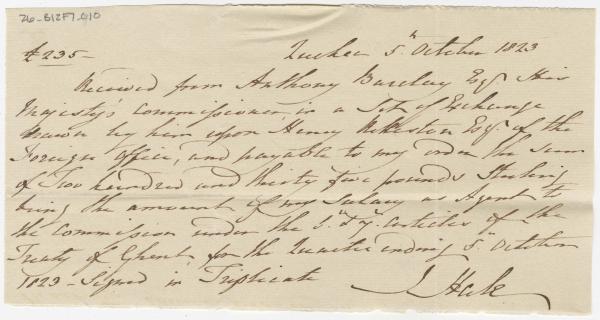 26-B12F7-010
£235- Quebec 5th October 1823
Received from Anthony Barclay Esqr. His
Majesty's Commissioner, in a Set of Exchange
drawn by him upon Henry Rolleston Esqr. of the
Foreign Office, and payable to my order the Sum
of Two hundred and thirty five pounds Sterling
being the amount of my Salary as Agent to
the Commission under the 6th & 7th articles of the
Treaty of Ghent, for the Quarter ending 5th October
1823 - Signed in Triplicate
J. Hale